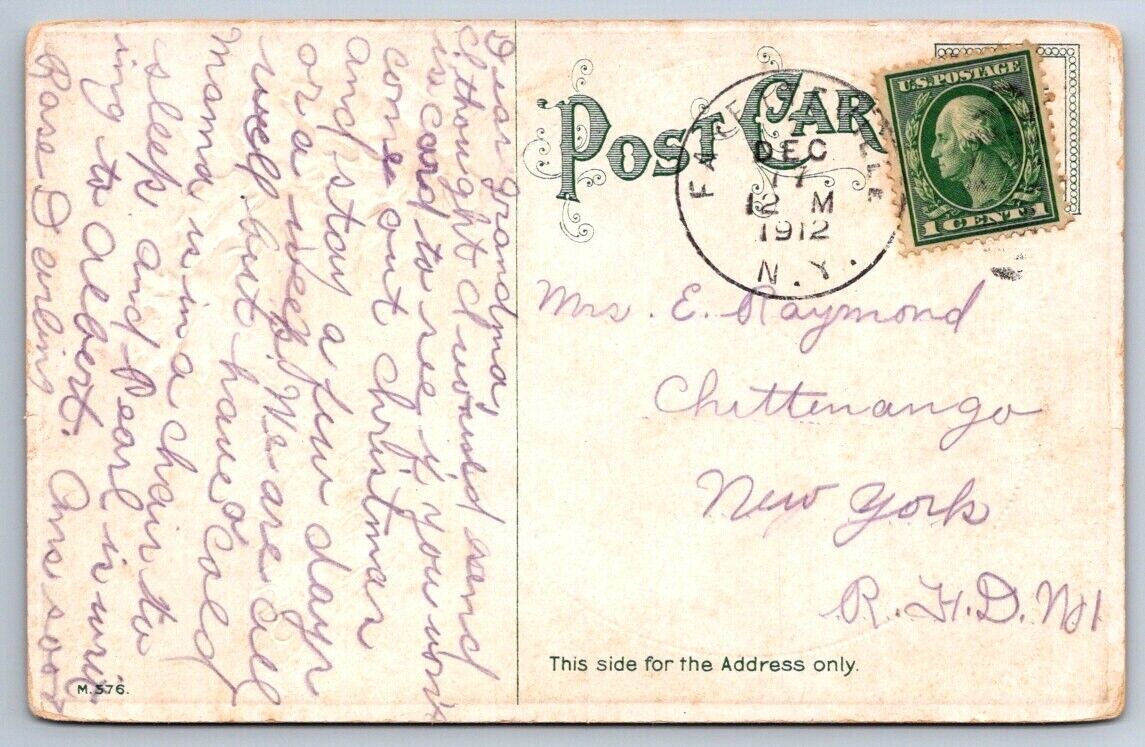 POST CARD
U.S. POSTAGE
1 CENT 1
DEC
17
12 M
1912
N.Y.
Mrs. E. Raymond
Chittenango
New York
R.F.D. No 1
This side for the Address only.
M. 576.
Dear grandma,
I thought I would send
is card to see if you wont
come out christmas
and stay a few days
or a week. We are all
well but have a cold
Mama is in a chair to
sleep and Pearl is writ
ing to Albert. Ans soon
Rose Darling